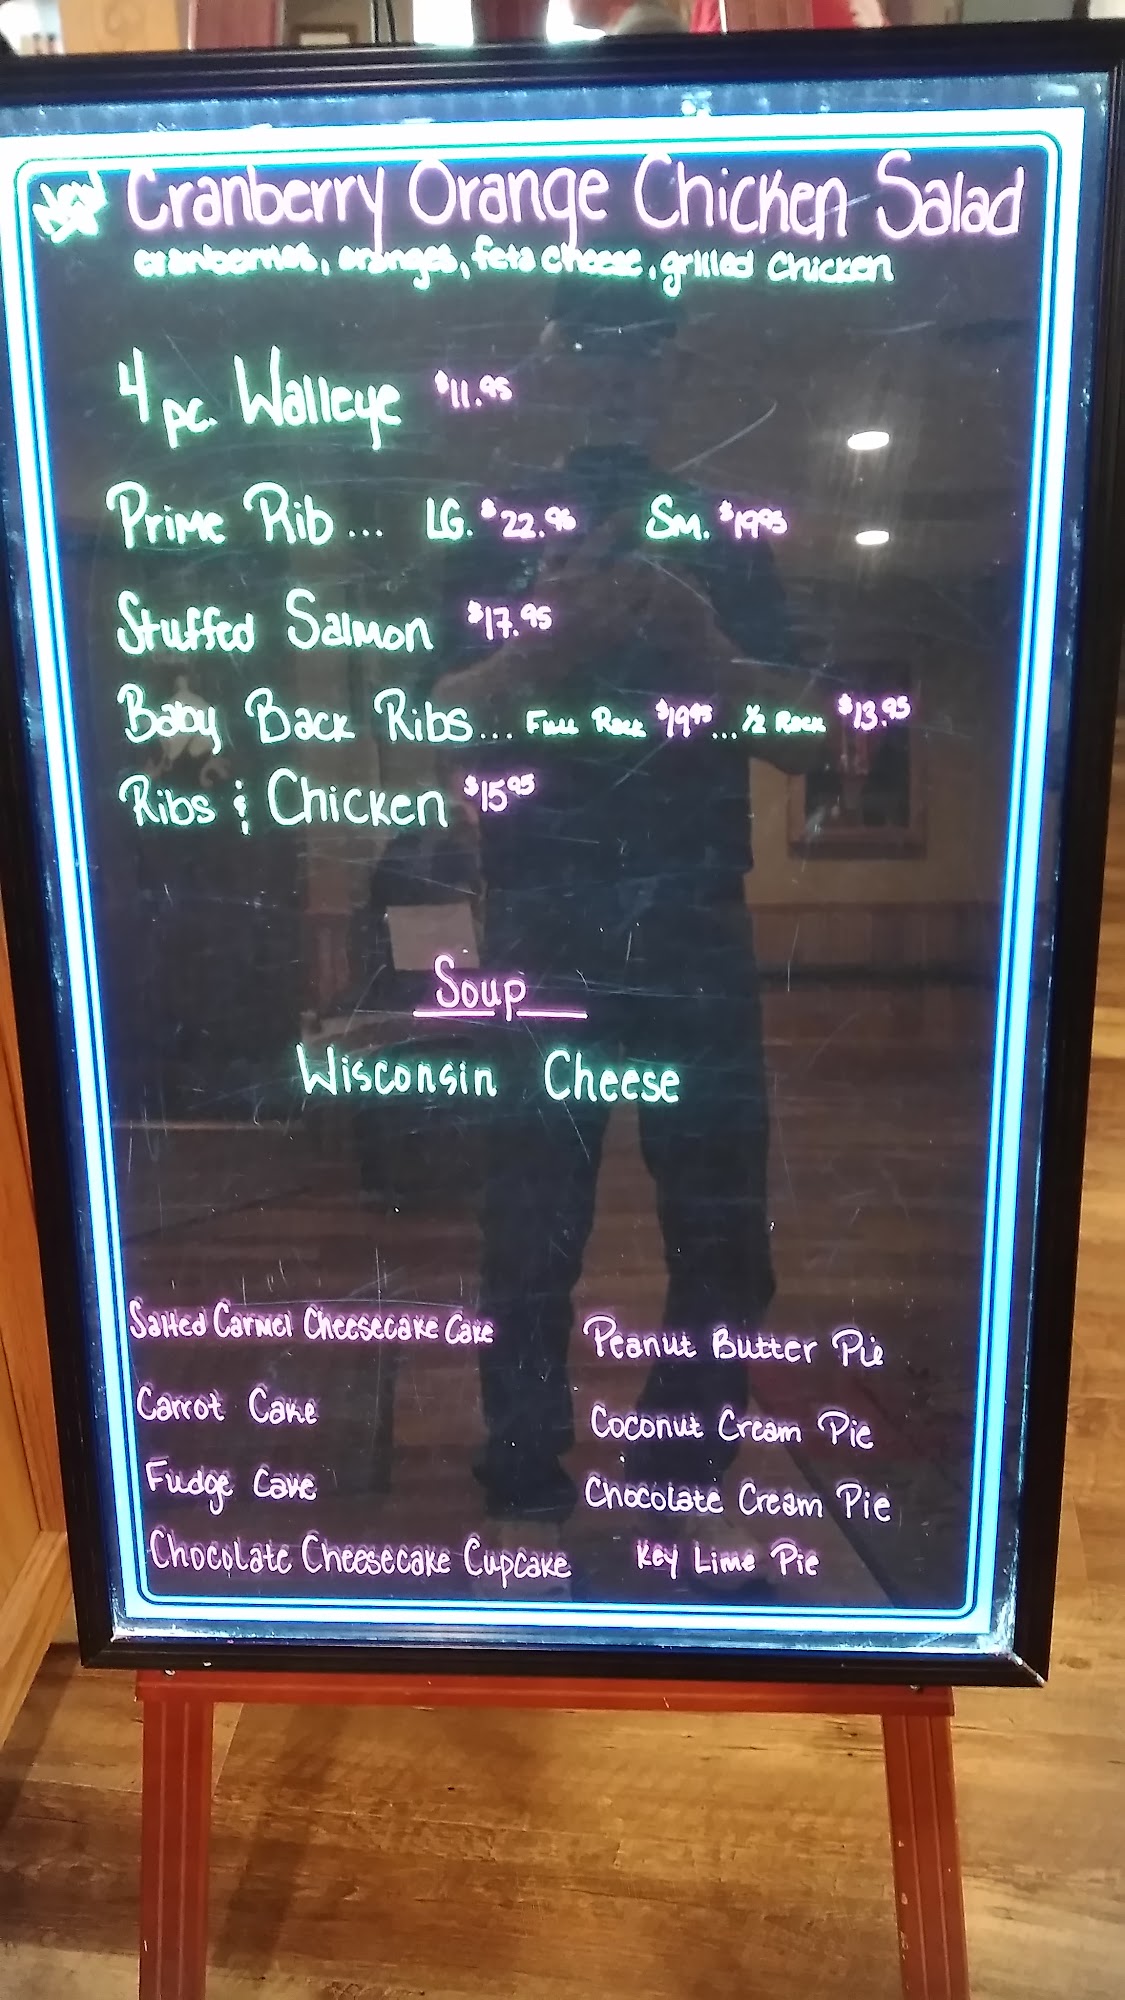 New
Cranberry Orange Chicken Salad
cranberries, oranges, feta cheese, grilled chicken
4 pc. Walleye $11.95
Prime Rib... LG. $22.95 Sm. $19.95
Stuffed Salmon $17.95
Baby Back Ribs... Full Rack $19.95... 1/2 Rack $13.95
Ribs & Chicken $15.95
Soup
Wisconsin Cheese
Salted Carmel Cheesecake Cake
Carrot Cake
Fudge Cake
Chocolate Cheesecake Cupcake
Peanut Butter Pie
Coconut Cream Pie
Chocolate Cream Pie
Key Lime Pie